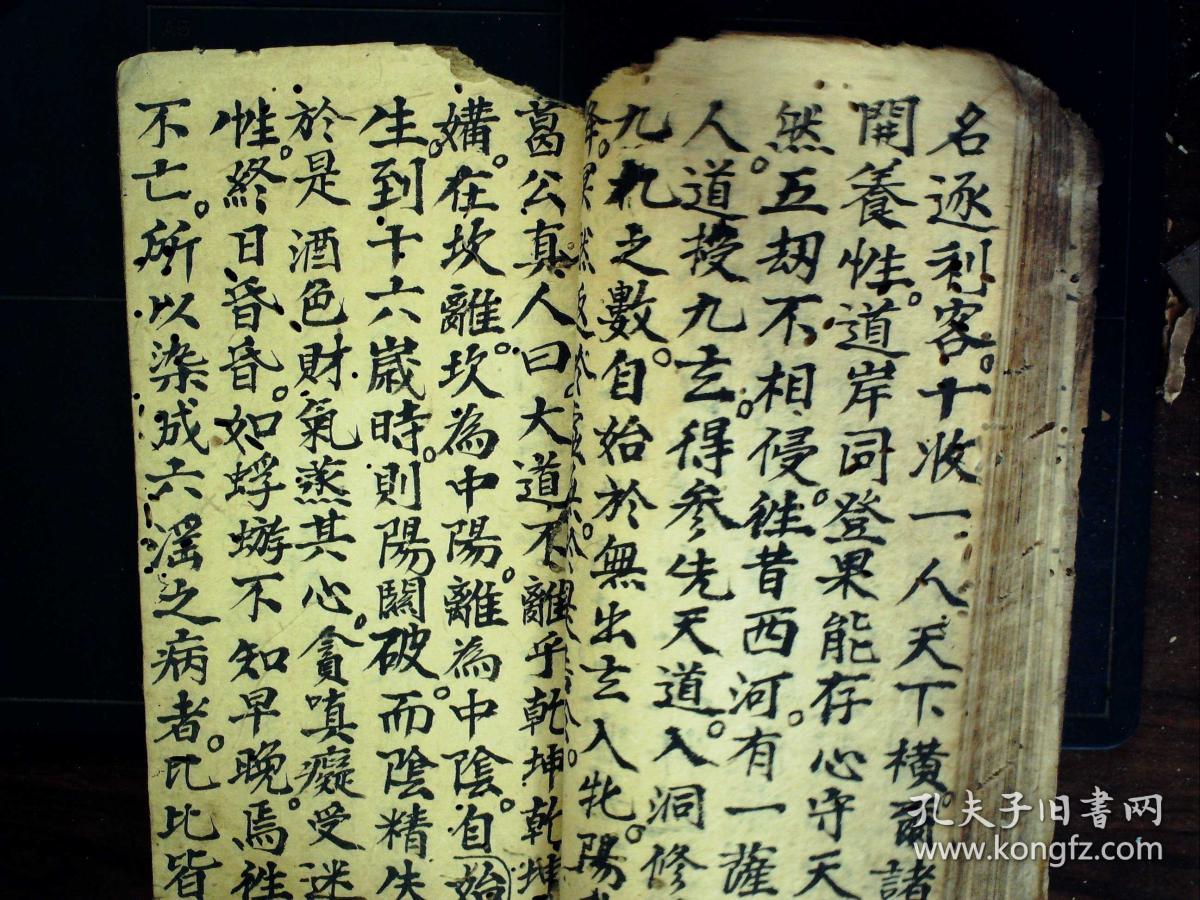 名逐利客。十收一人天下橫。爾諸
開養性。道岸同登果能存心守天
然五刼不相侵。徃昔西河。有一薩
人。道授九玄。得參先天道。入洞修
九九之數。自始於無出玄入牝。陽
葛公真人曰大道不離乎乾坤乾坤
媾。在坎離。坎為中陽。離為中陰。自始
生。到十六歲時。則陽關破。而陰精失
於是酒色財氣蒸其心。貪嗔癡受迷
性。終日昏昏。如蜉蝣不知早晚。焉徃
不亡。所以染成六淫之病者。比比皆
孔夫子旧書网
www.kongfz.com